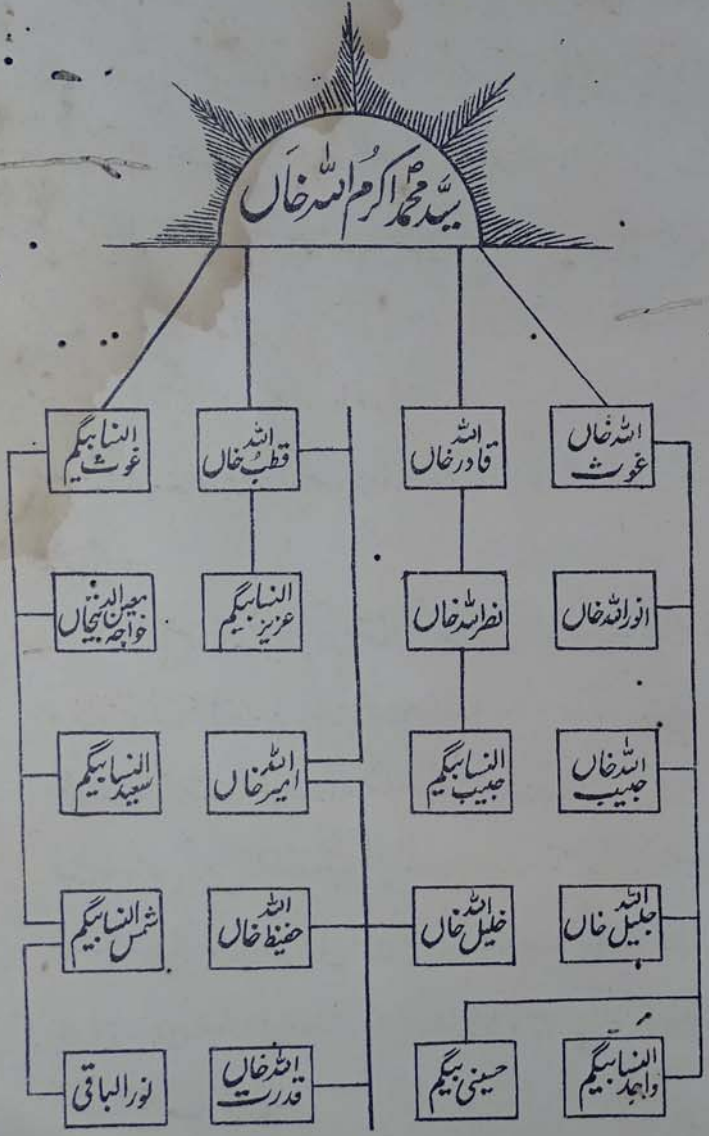 سیّد محمد اکرم اللہ خاں
غوث اللہ خاں
قادر اللہ خاں
قطب اللہ خاں
غوث النسا بیگم
انور اللہ خاں
نصر اللہ خاں
عزیز النسا بیگم
خواجہ معین الدینخاں
حبیب اللہ خاں
حبیب النسا بیگم
امیر اللہ خاں
سعید النسا بیگم
جلیل اللہ خاں
خلیل اللہ خاں
حفیظ اللہ خاں
شمس النسا بیگم
واجد النسا بیگم
حسینی بیگم
قدرت اللہ خاں
نور الباقی